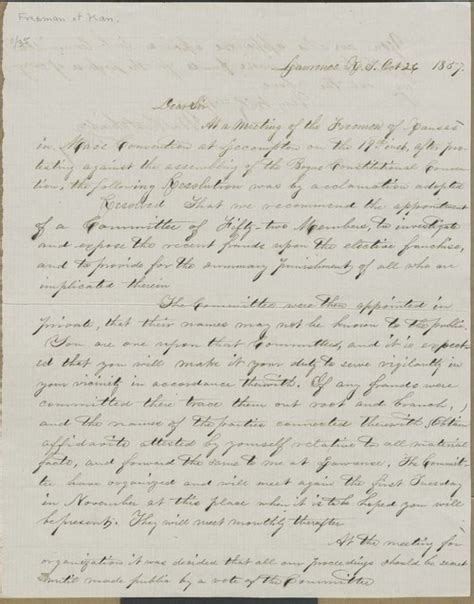 Freeman et Kan.
Lawrence K. T. Oct 26 1857.
Dear Sir
At a Meeting of the Freemen of Kansas
in Mass Convention at Lecompton on the 19th inst, after pro-
testing against the assembling of the Bogus Constitutional Conven-
tion, the following Resolution was by acclamation adopted
Resolved That we recommend the appointment
of a Committee of Fifty-two Members, to investigate
and expose the recent frauds upon the elective franchise,
and to provide for the summary punishment of all who are
implicated therein
The Committee were then appointed in
private, that their names may not be known to the public
You are one upon that Committee, and it is expect
ed that you will make it your duty to serve vigilantly in
your vicinity in accordance therewith. If any frauds were
committed there trace them out root and branch,
and the names of the parties connected therewith, obtain
affidavits attested by yourself relative to all material
facts, and forward the same to me at Lawrence. The Commit-
tee have organized and will meet again the first Tuesday
in November at this place when it is to be hoped you will
be present. They will meet monthly thereafter
At the meeting for
organization it was decided that all our proceedings should be secret
until made public by a vote of the Committee